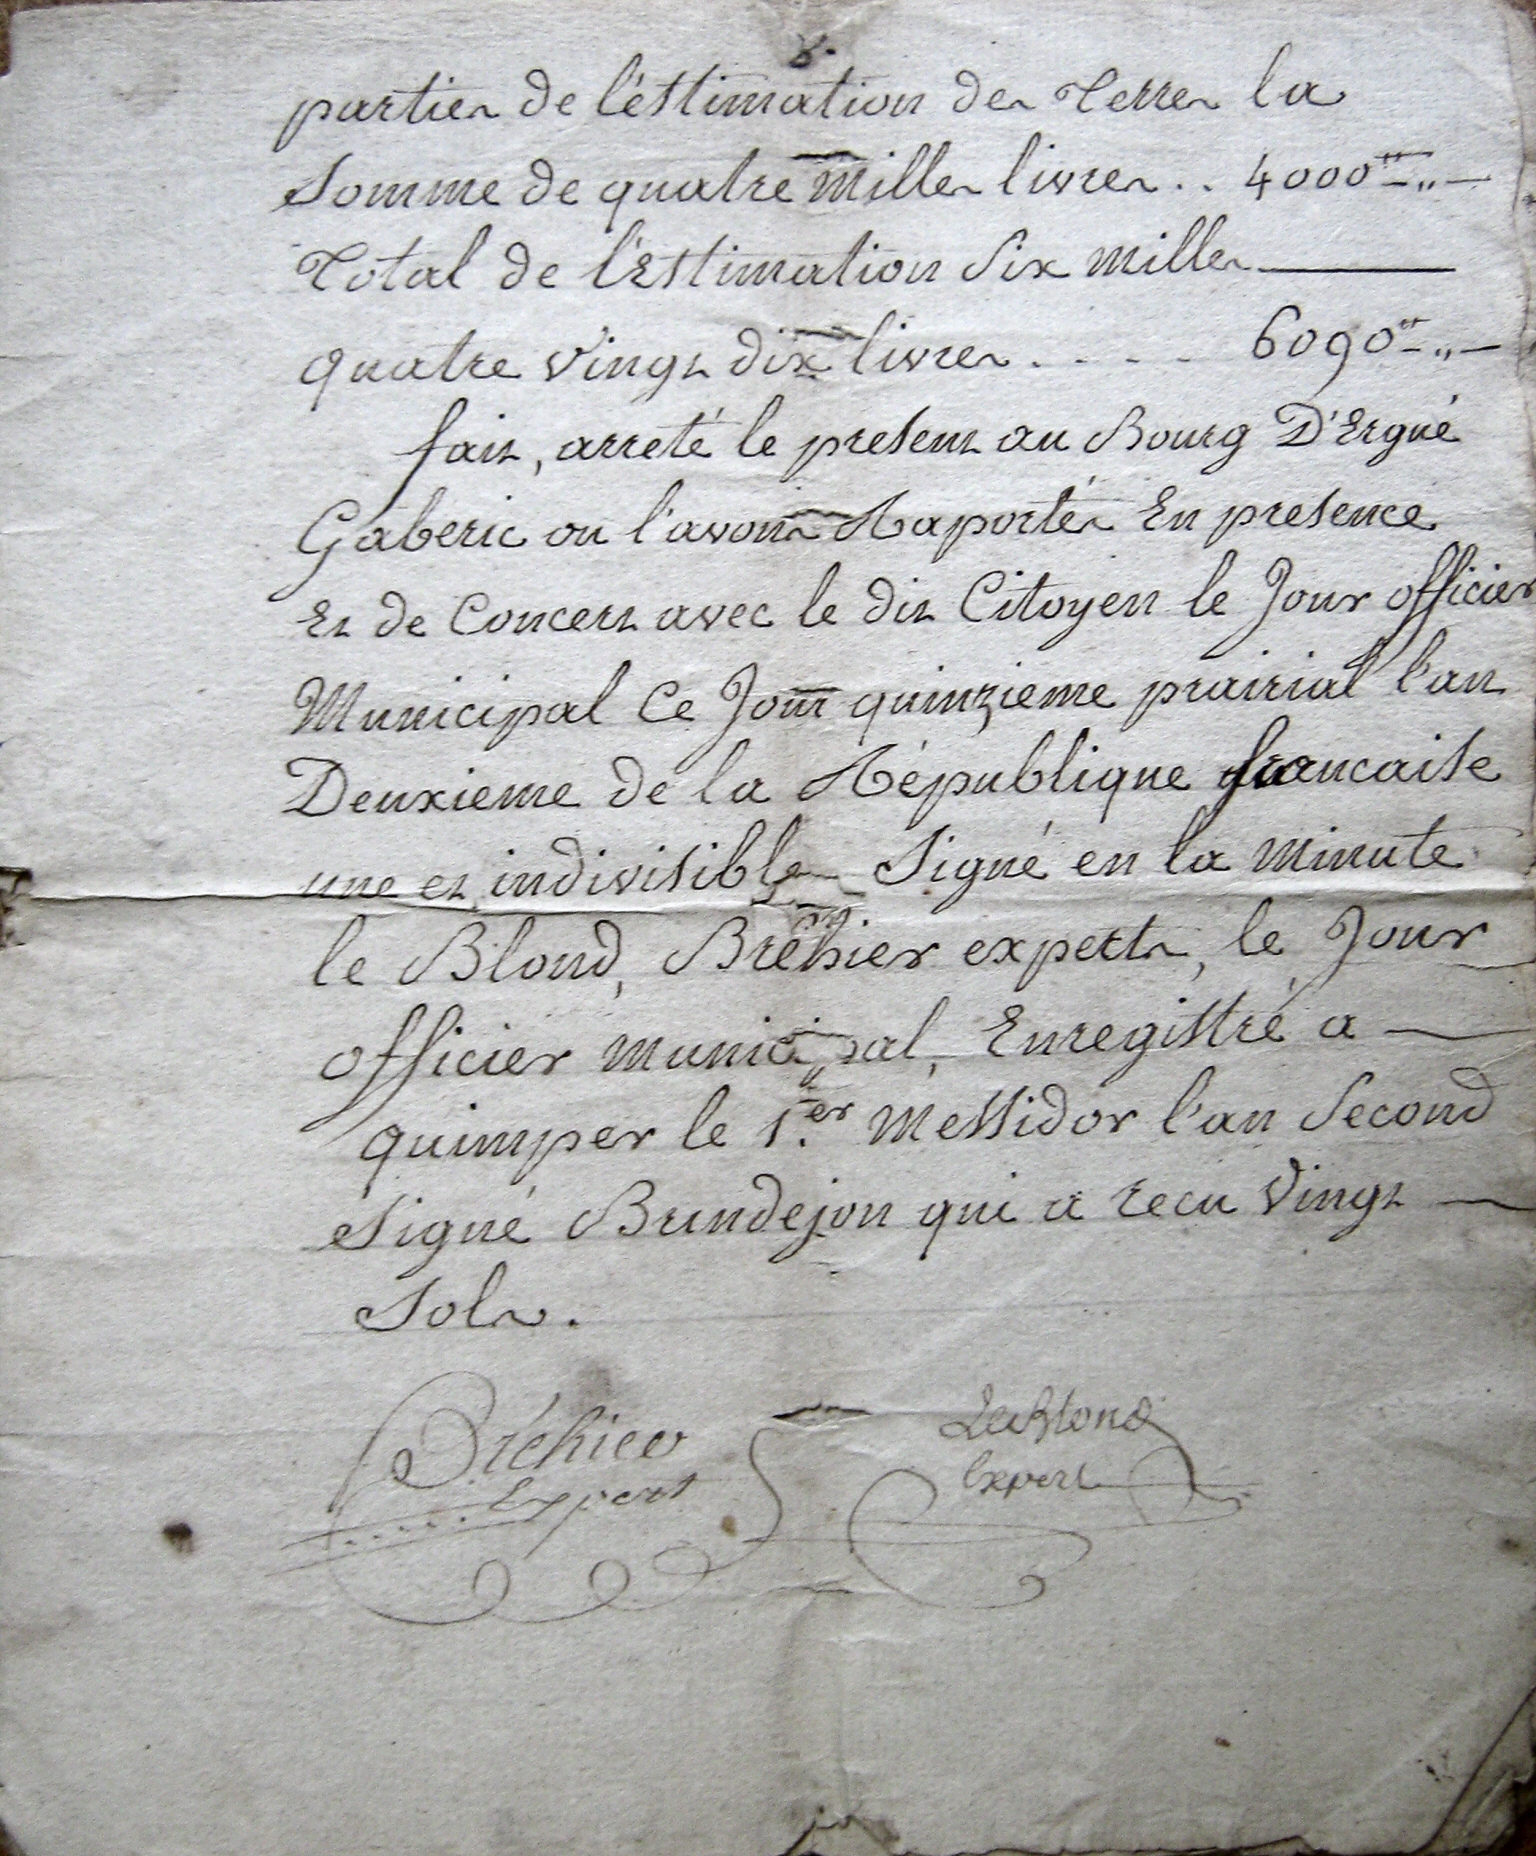 8.
parties de l'éstimation des terres la
Somme de quatre mille livres .. 4000 ₶ - „ -
Total de l'Estimation Six mille
quatre vingt dix livres . . . . 6090 ₶ - „ -
fait, arreté le present au Bourg D'Ergué
Gaberic ou l'avons Raportés En presence
Et de Concert avec le dit Citoyen le Jour officier
Municipal Ce Jour quinzieme prairial l'an
Deuxieme de la République francaise
une et indivisible Signé en la minute
le Blond, Bréhier experts, le Jour
officier municipal, Enregistré a
quimper le 1.er Messidor l'an Second
Signé Brindejon qui a recu Vingt
Sols.
Bréhier Le Blond
Expert Expert